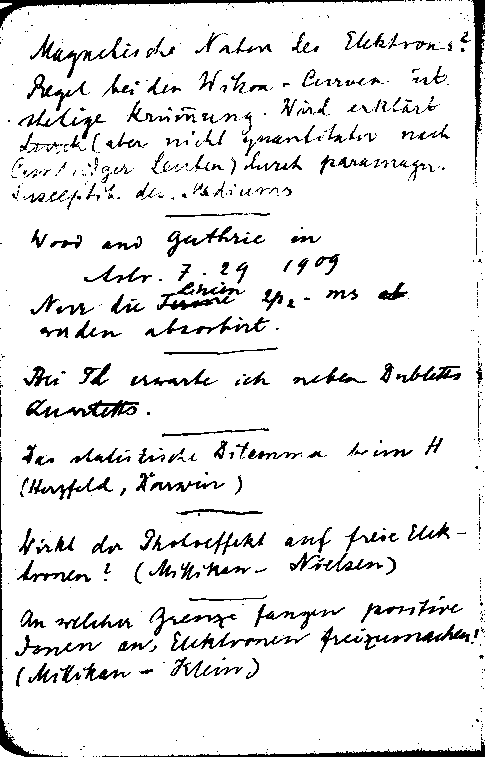 Magnetische Natur des Elektrons?
Regel bei den Wilson-Curven ist
stetige Krümmung. Wird erklärt
durch (aber nicht quantitativ nach
Leuten) durch paramagn.
Susceptib. des Mediums
Wood and Guthrie in
Astr. 7. 29 1909
Nur die Linien 2p₂ - ms
werden absorbirt.
Bei Tl erwarte ich neben Dubletts
Quartetts.
Das statistische Dilemma beim H
(Herzfeld, Darwin)
Wirkt der Photoeffekt auf freie Elek-
tronen? (Millikan - Nielsen)
An welcher Grenze fangen positive
Ionen an, Elektronen freizumachen?
(Millikan - Klein)